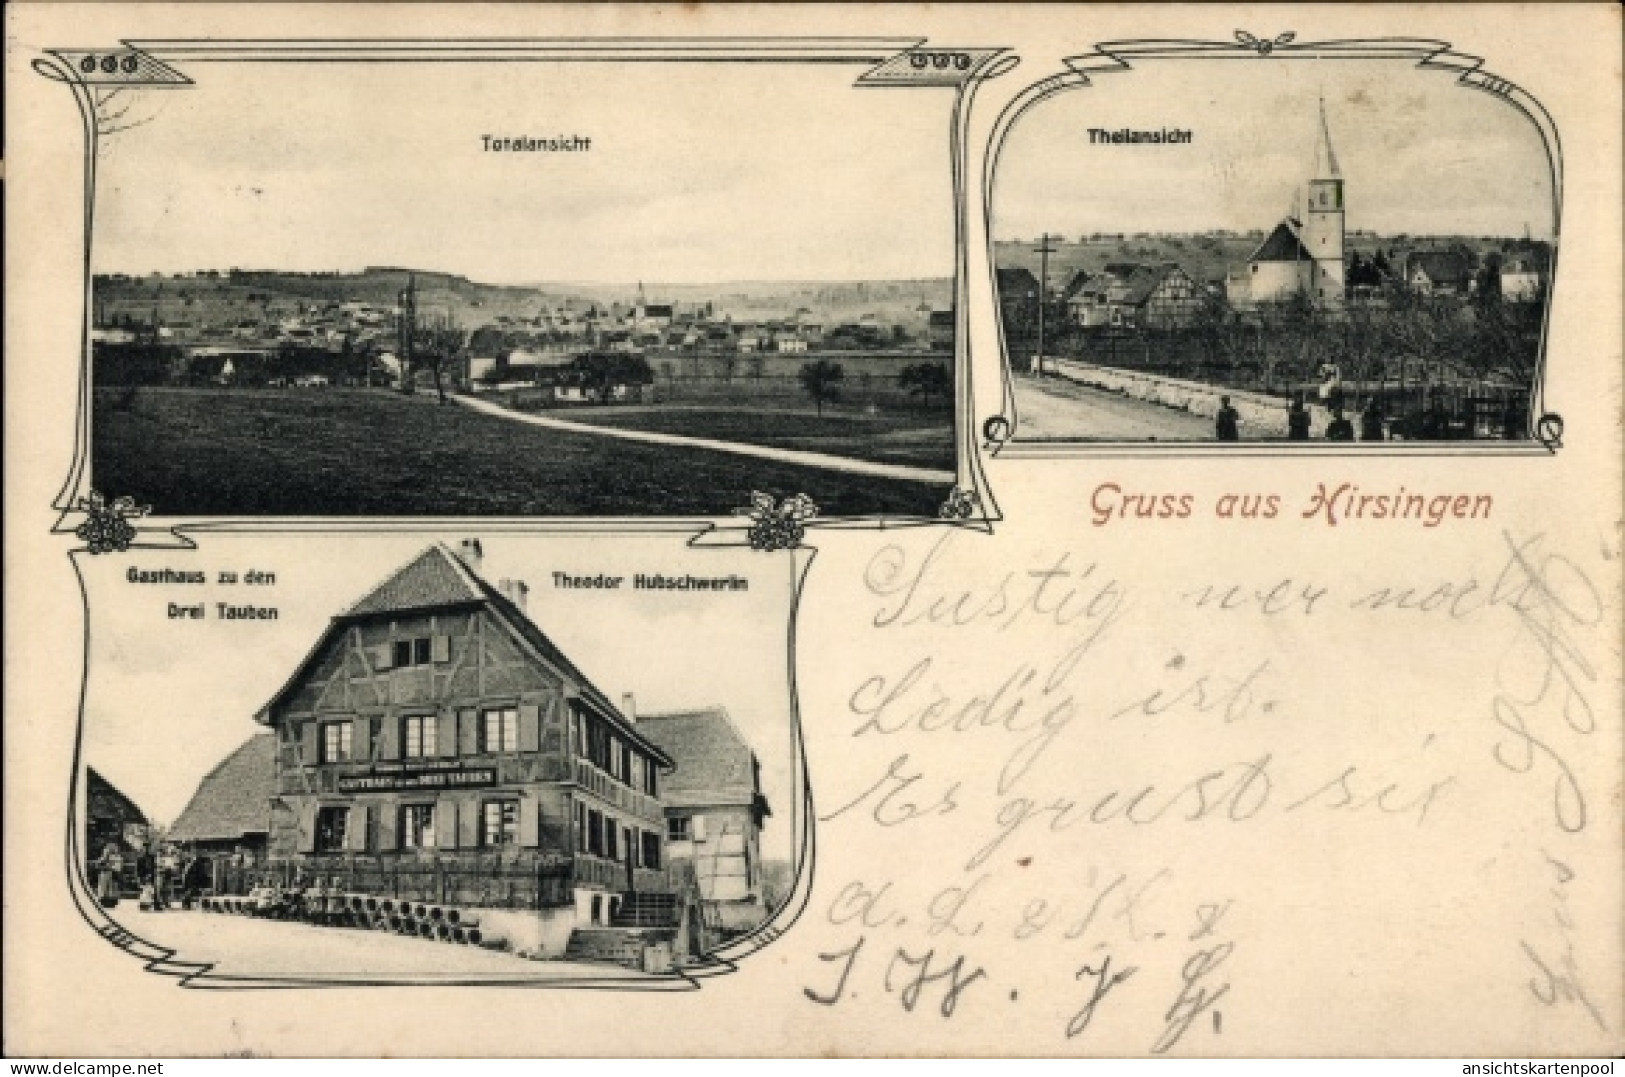 Totalansicht
Theilansicht
Gruss aus Hirsingen
Gasthaus zu den
Drei Tauben
Theodor Hubschwerlin
GASTHAUS ZU DEN DREI TAUBEN
Lustig wer noch
Ledig ist.
Es grust sie
d. L. & K. &
J. W. J G.
delcampe.net
ansichtskartenpool